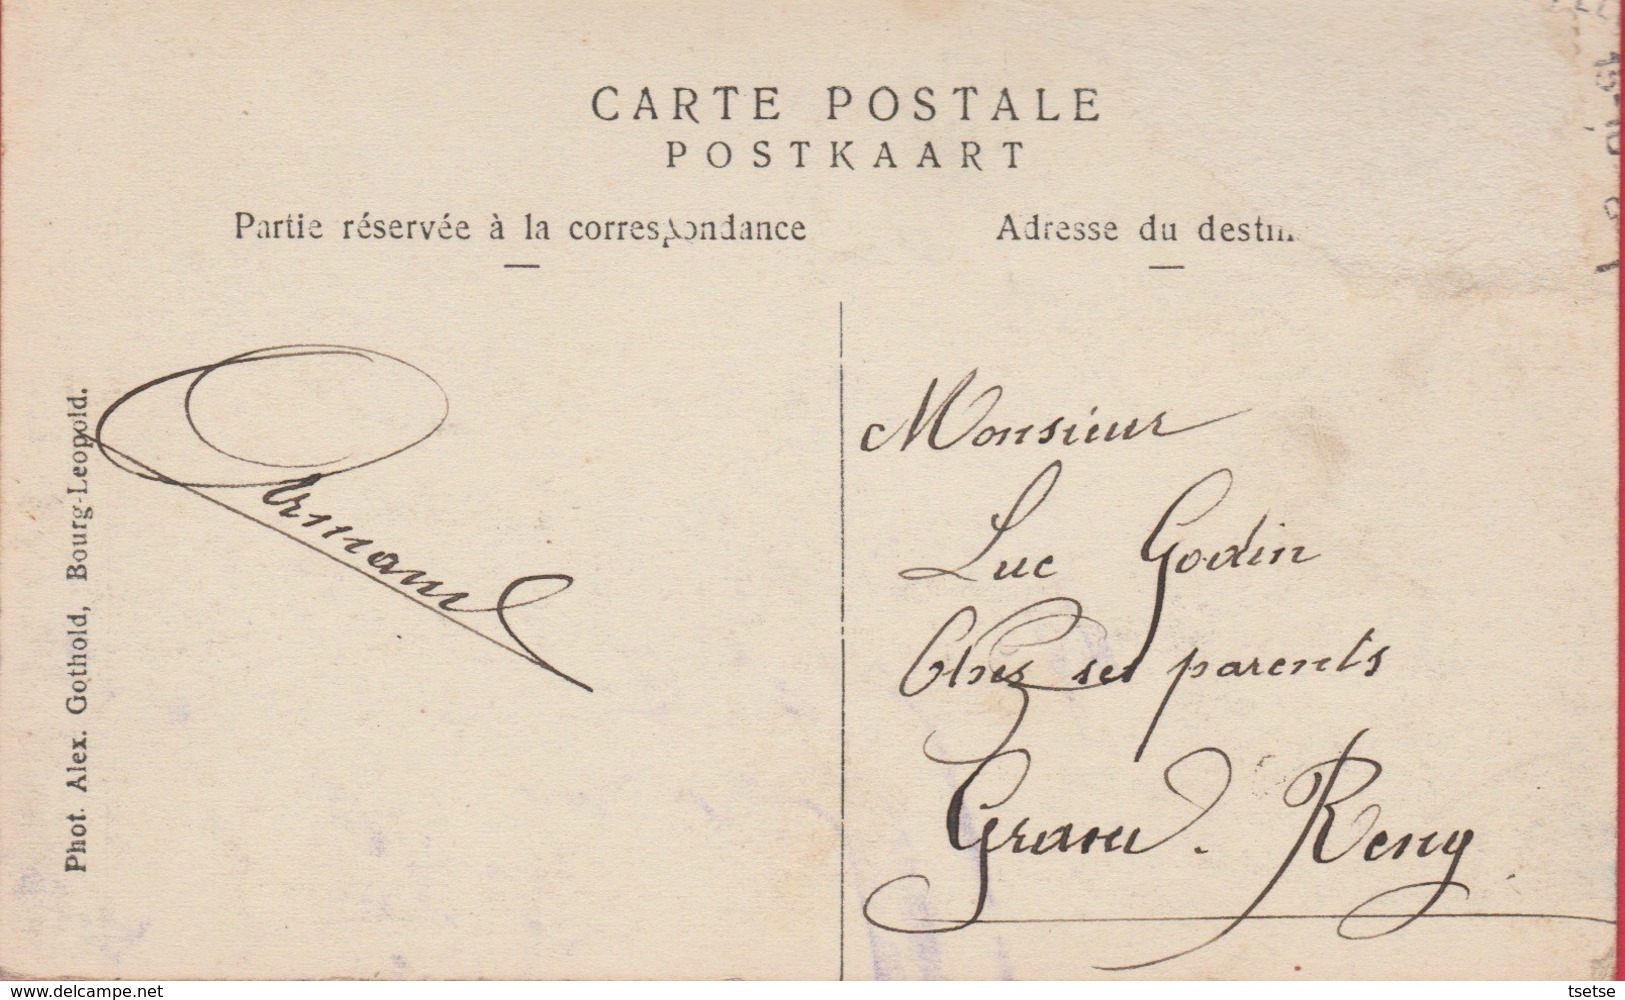 CARTE POSTALE
POSTKAART
Partie réservée à la correspondance
Adresse du destin
Phot. Alex. Gothold, Bourg-Leopold.
Armand
Monsieur
Luc Godin
Chez ses parents
Grand. Reng
www.delcampe.net
tsetse